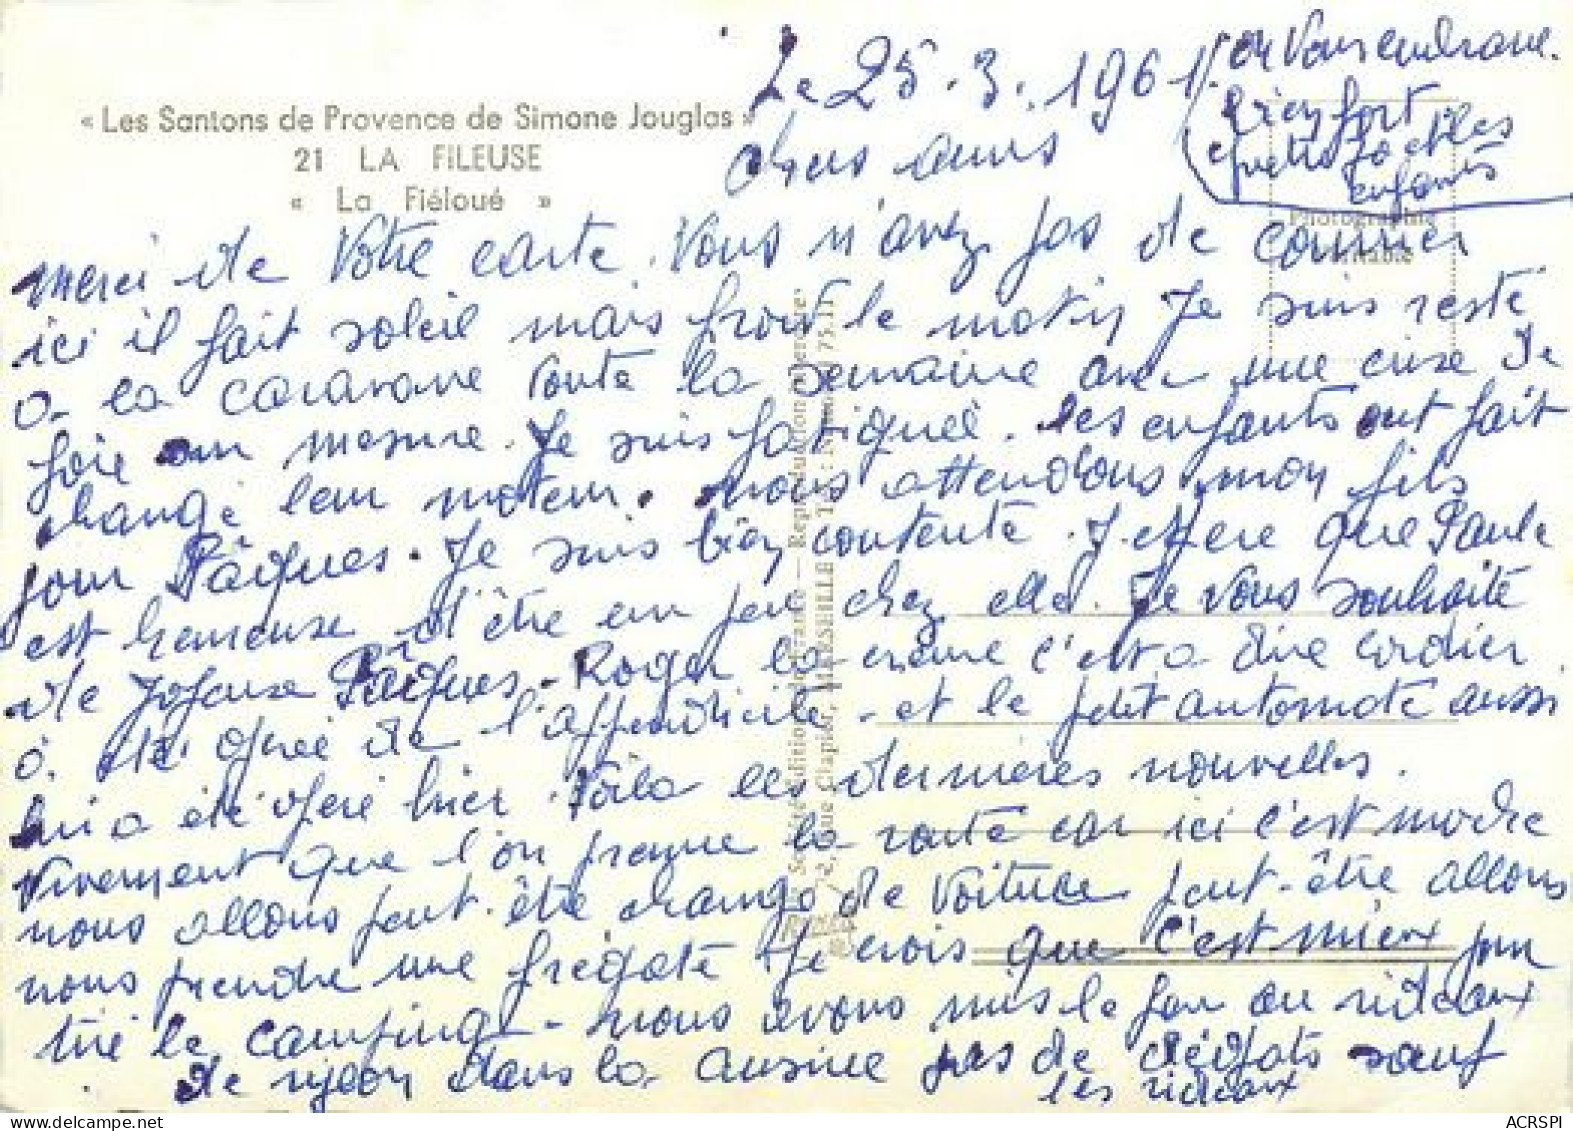 « Les Santons de Provence de Simone Jouglas »
21 LA FILEUSE
« La Fiéloué »
Le 25.3.1961
chers amis
merci de votre carte. Vous n'avez pas de courrier
ici il fait soleil mais froid le matin Je suis reste
a la caravane toute la semaine avec une crise de
foie sur mesure. Je suis fatiguée. les enfants ont fait
changé leur moteur. nous attendons mon fils
pour Pâques. Je suis bien contente. J'espere que Paule
est heureuse d'être un peu chez elle. Je vous souhaite
de joyeuse Pâques. Roger la creme c'est a dire cordier
a été opéré de l'appendicite - et le petit automate aussi
lui a été opéré hier. Voila les dernières nouvelles.
Vivement que l'on prenne la route car ici c'est moche
nous allons peut-être change de voiture peut-être allons
nous prendre une frégate Je crois que c'est mieux pour
tiré le camping - nous avons mis le feu au rideaux
de nylon dans la cuisine pas de dégats sauf
les rideaux
on vous embrasse
bien fort
Yvette Jo et les
enfants
Photographie
véritable
Société Edition de France — Reproduction interdite
2, rue Clapier, MARSEILLE
ACRSPI